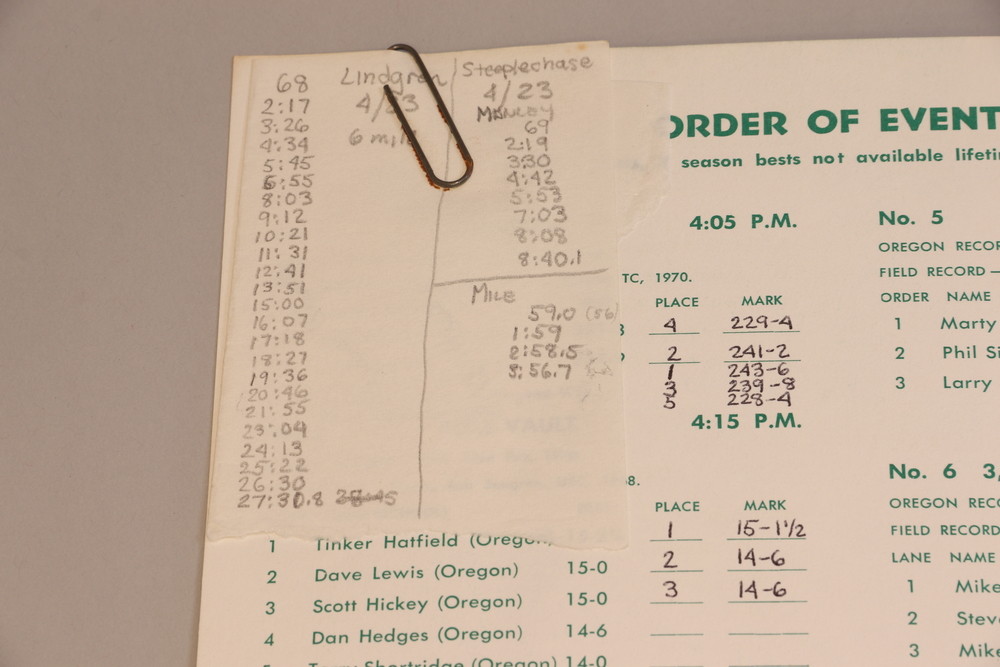 68
2:17
3:26
4:34
5:45
6:55
8:03
9:12
10:21
11:31
12:41
13:51
15:00
16:07
17:18
18:27
19:36
20:46
21:55
23:04
24:13
25:22
26:30
27:30.8
Lindgren
4/23
6 mile
Steeplechase
4/23
MANLEY
69
2:19
3:30
4:42
5:53
7:03
8:08
8:40.1
MILE
59.0 (56)
1:59
2:58.5
3:56.7
ORDER OF EVENT
season bests not available lifeti
4:05 P.M.
TC, 1970.
PLACE MARK
4 229-4
2 241-2
1 243-6
3 239-8
5 228-4
4:15 P.M.
8.
PLACE MARK
1 15-1½
1 Tinker Hatfield (Oregon)
2 14-6
2 Dave Lewis (Oregon) 15-0
3 14-6
3 Scott Hickey (Oregon) 15-0
4 Dan Hedges (Oregon) 14-6
Shortridge (Oregon) 14-0
No. 5
OREGON RECOR
FIELD RECORD —
ORDER NAME
1 Marty
2 Phil Si
3 Larry
No. 6 3,
OREGON RECO
FIELD RECORD
LANE NAME
1 Mike
2 Steve
3 Mike